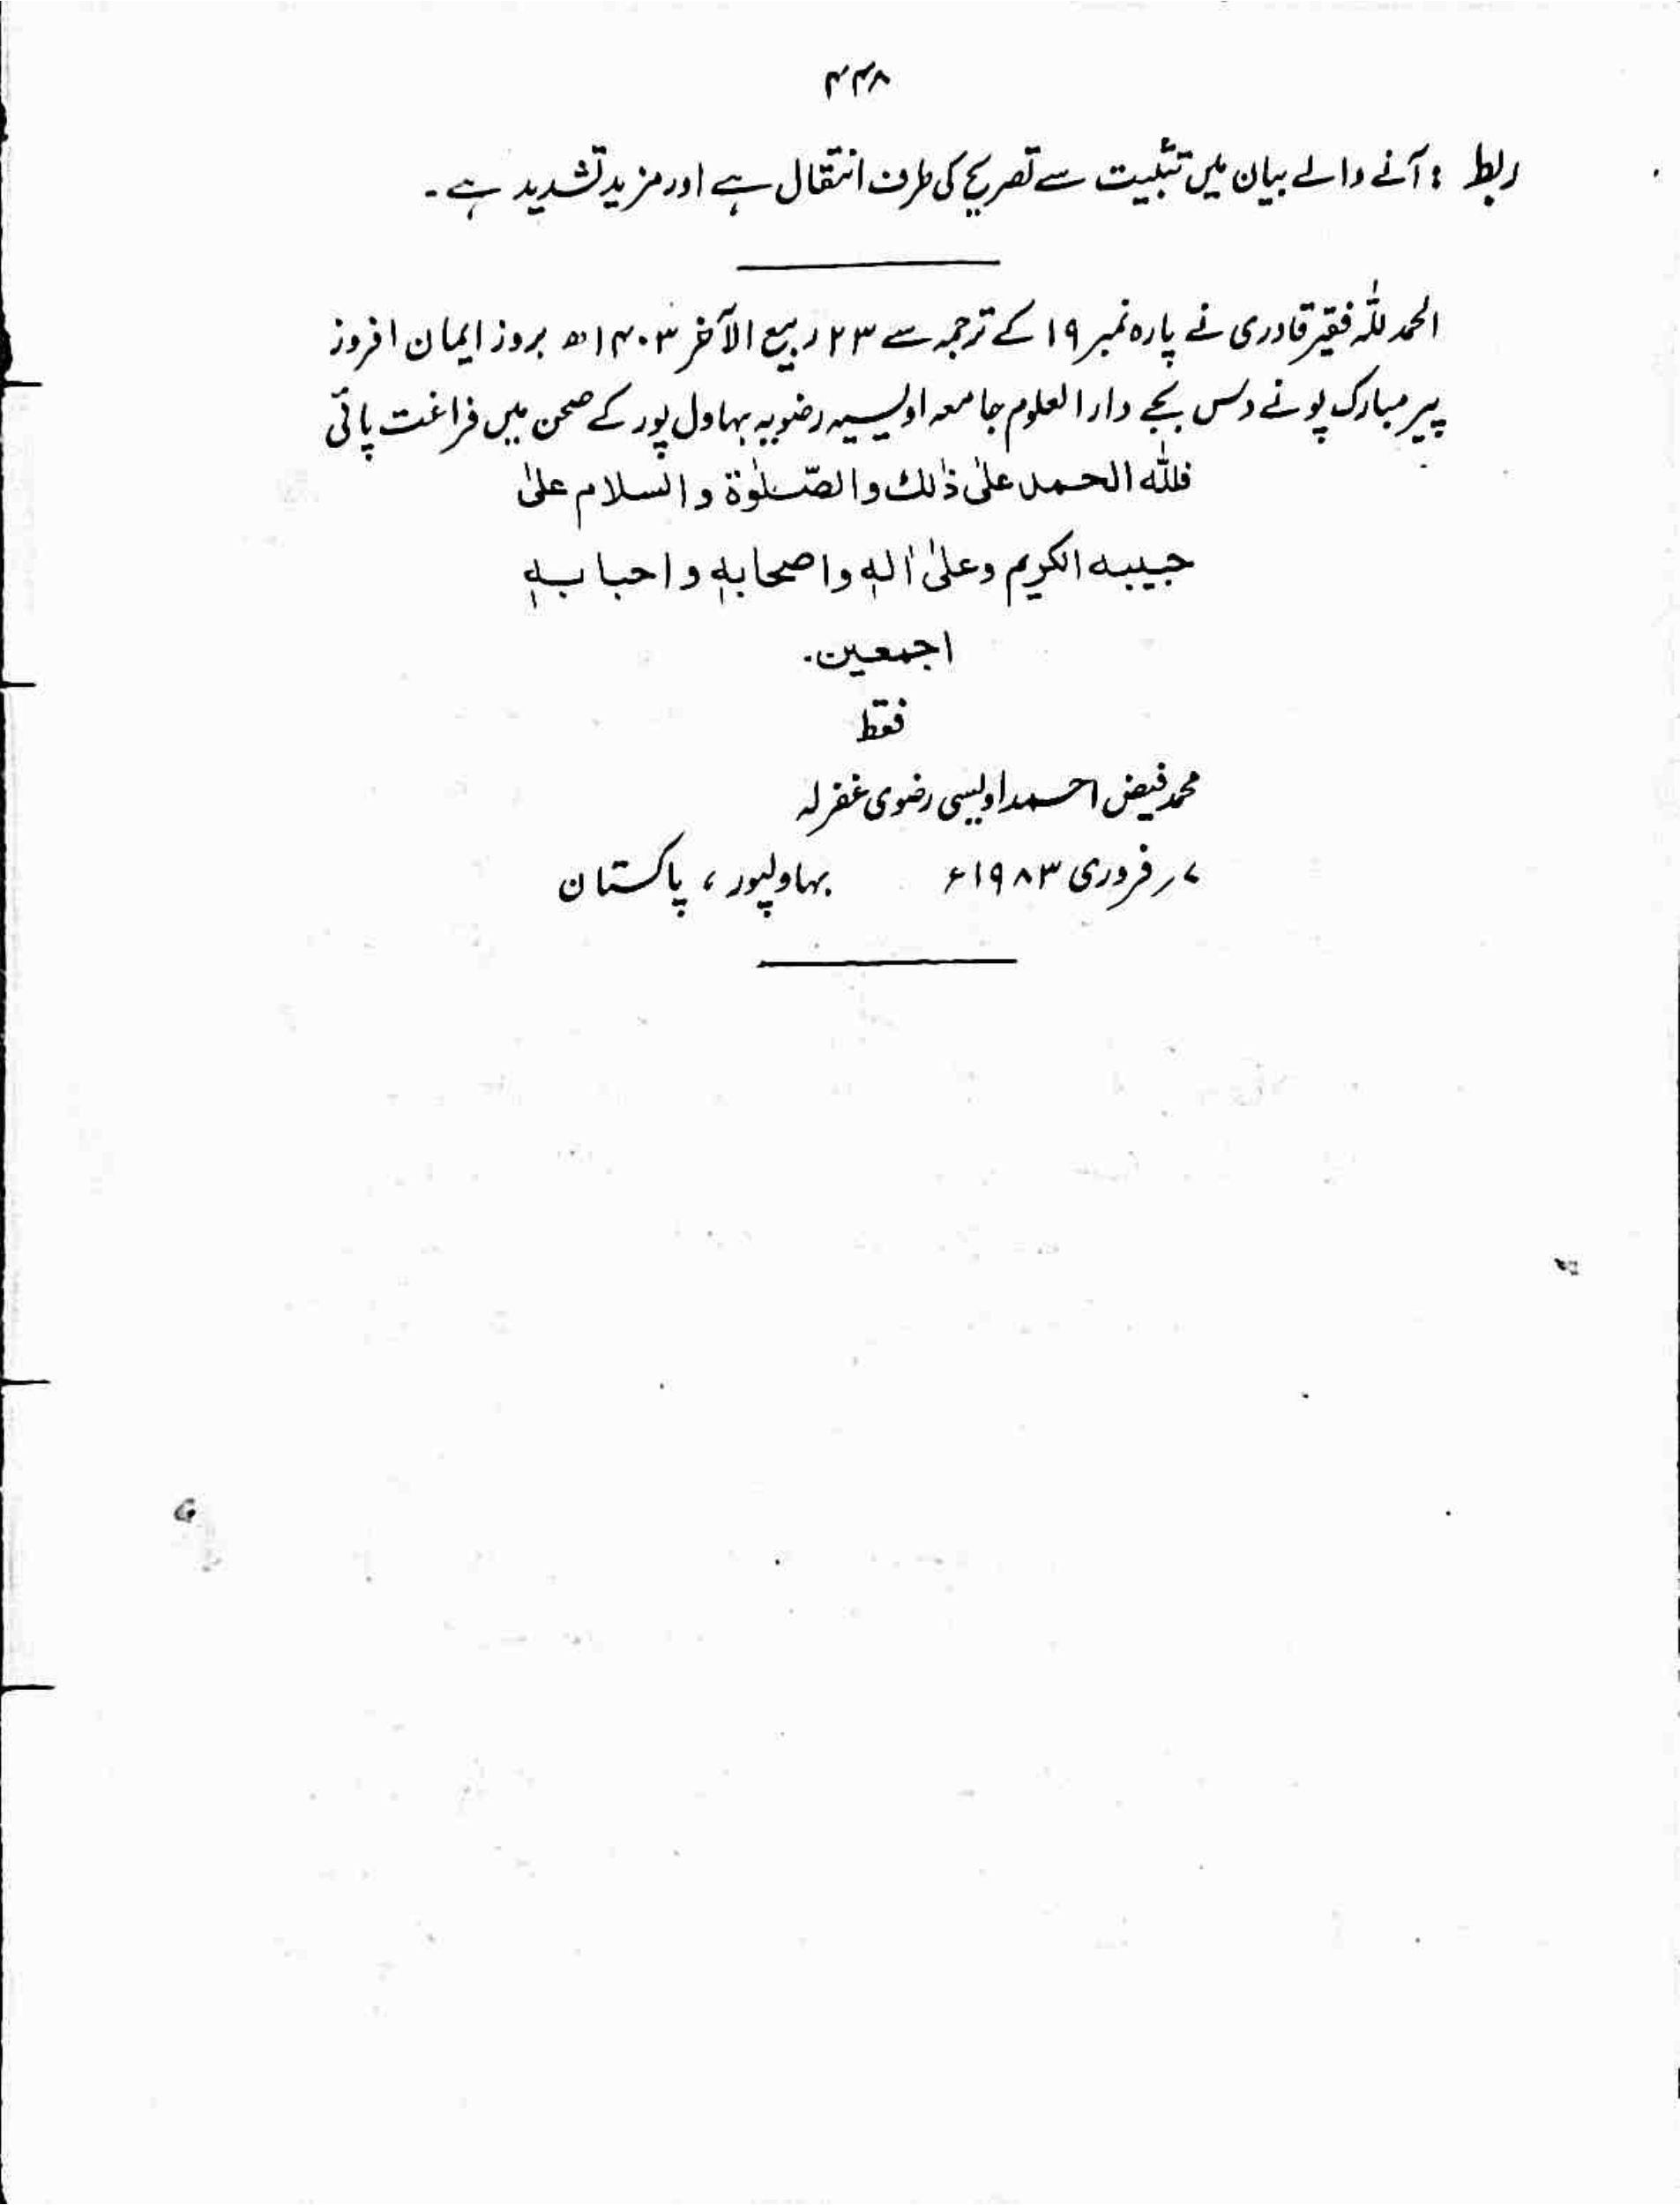 ۴۴۸
ربط : آنے والے بیان میں تبکیت سے تصریح کی طرف انتقال ہے اور مزید تشدید ہے۔
الحمد للہ فقیر قادری نے پارہ نمبر ۱۹ کے ترجمہ سے ۲۳ ربیع الآخر ۱۴۰۳ھ بروز ایمان افروز
پیر مبارک پونے دس بجے دارالعلوم جامعہ اویسیہ رضویہ بہاول پور کے صحن میں فراغت پائی
فللّٰہ الحمد علیٰ ذٰلک والصّلوٰۃ والسلام علیٰ
حبیبہ الکریم وعلیٰ اٰلہٖ واصحابہٖ واحبابہٖ
اجمعین۔
فقط
محمد فیض احمد اویسی رضوی غفرلہ
۷ر فروری ۱۹۸۳ء بہاولپور، پاکستان